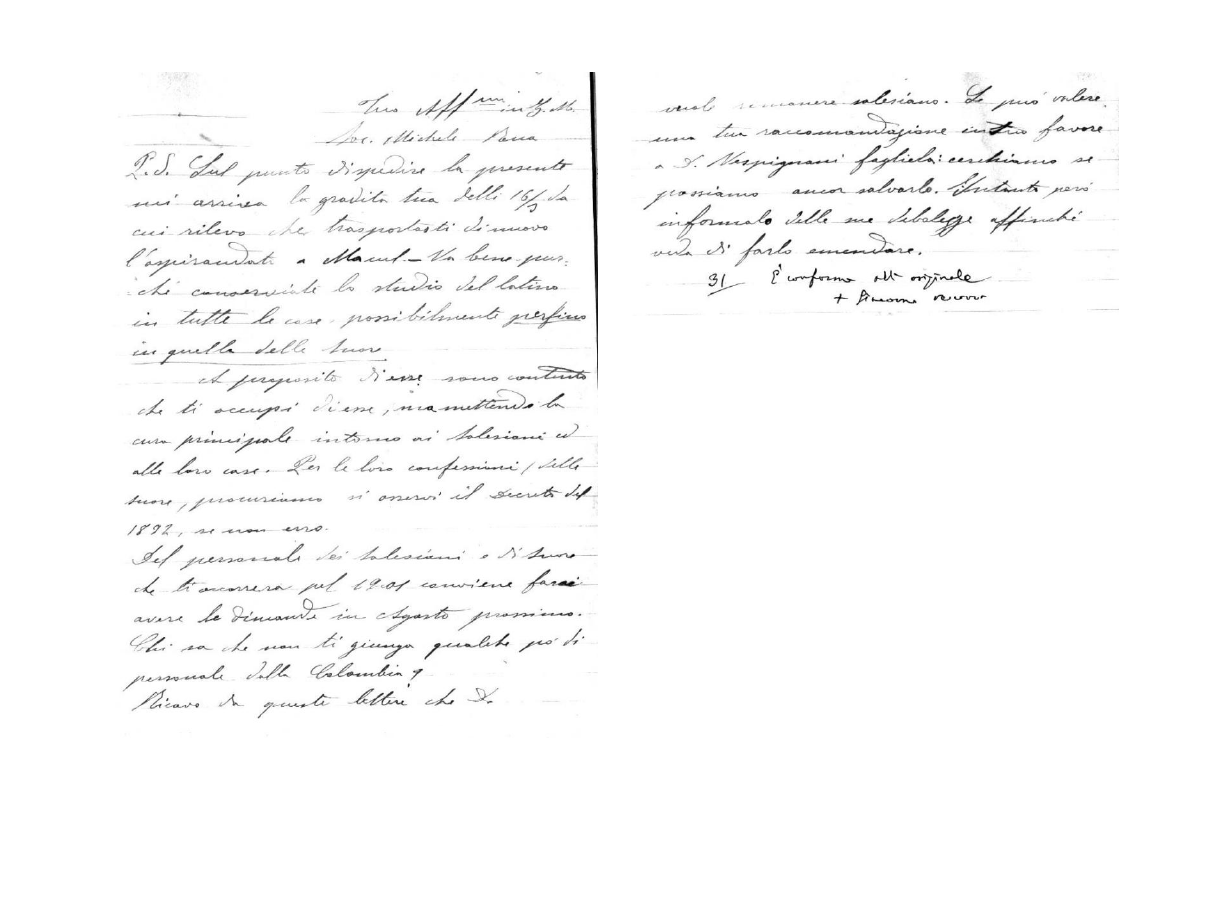 Tuo Aff.mo in G. M.
Sac. Michele Rua
P.S. Sul punto di spedire la presente
mi arriva la gradita tua delli 16/3 da
cui rilevo che trasportasti di nuovo
l'aspirandato a Macul - Va bene pur=
ché conserviate lo studio del latino
in tutte le case possibilmente perfino
in quella delle suore
A proposito di esse sono contento
che ti occupi di esse, ma mettendo la
cura principale intorno ai Salesiani ed
alle loro case. Per le loro confessioni (delle
suore, procuriamo si osservi il Decreto del
1892, se non erro.
Del personale dei Salesiani e di Suore
che ti occorrerà pel 1901 conviene farci
avere le dimande in Agosto prossimo.
Chi sa che non ti giunga qualche po' di
personale dalla Colombia?
Ricavo da queste lettere che D.
vuole rimanere salesiano. Se può valere
una tua raccomandazione in suo favore
a D. Vespignani fagliela: cerchiamo se
possiamo ancor salvarlo. Intanto però
informalo delle sue debolezze affinché
veda di farlo emendare.
31 È conforme all' originale
+ Giacomo vescovo